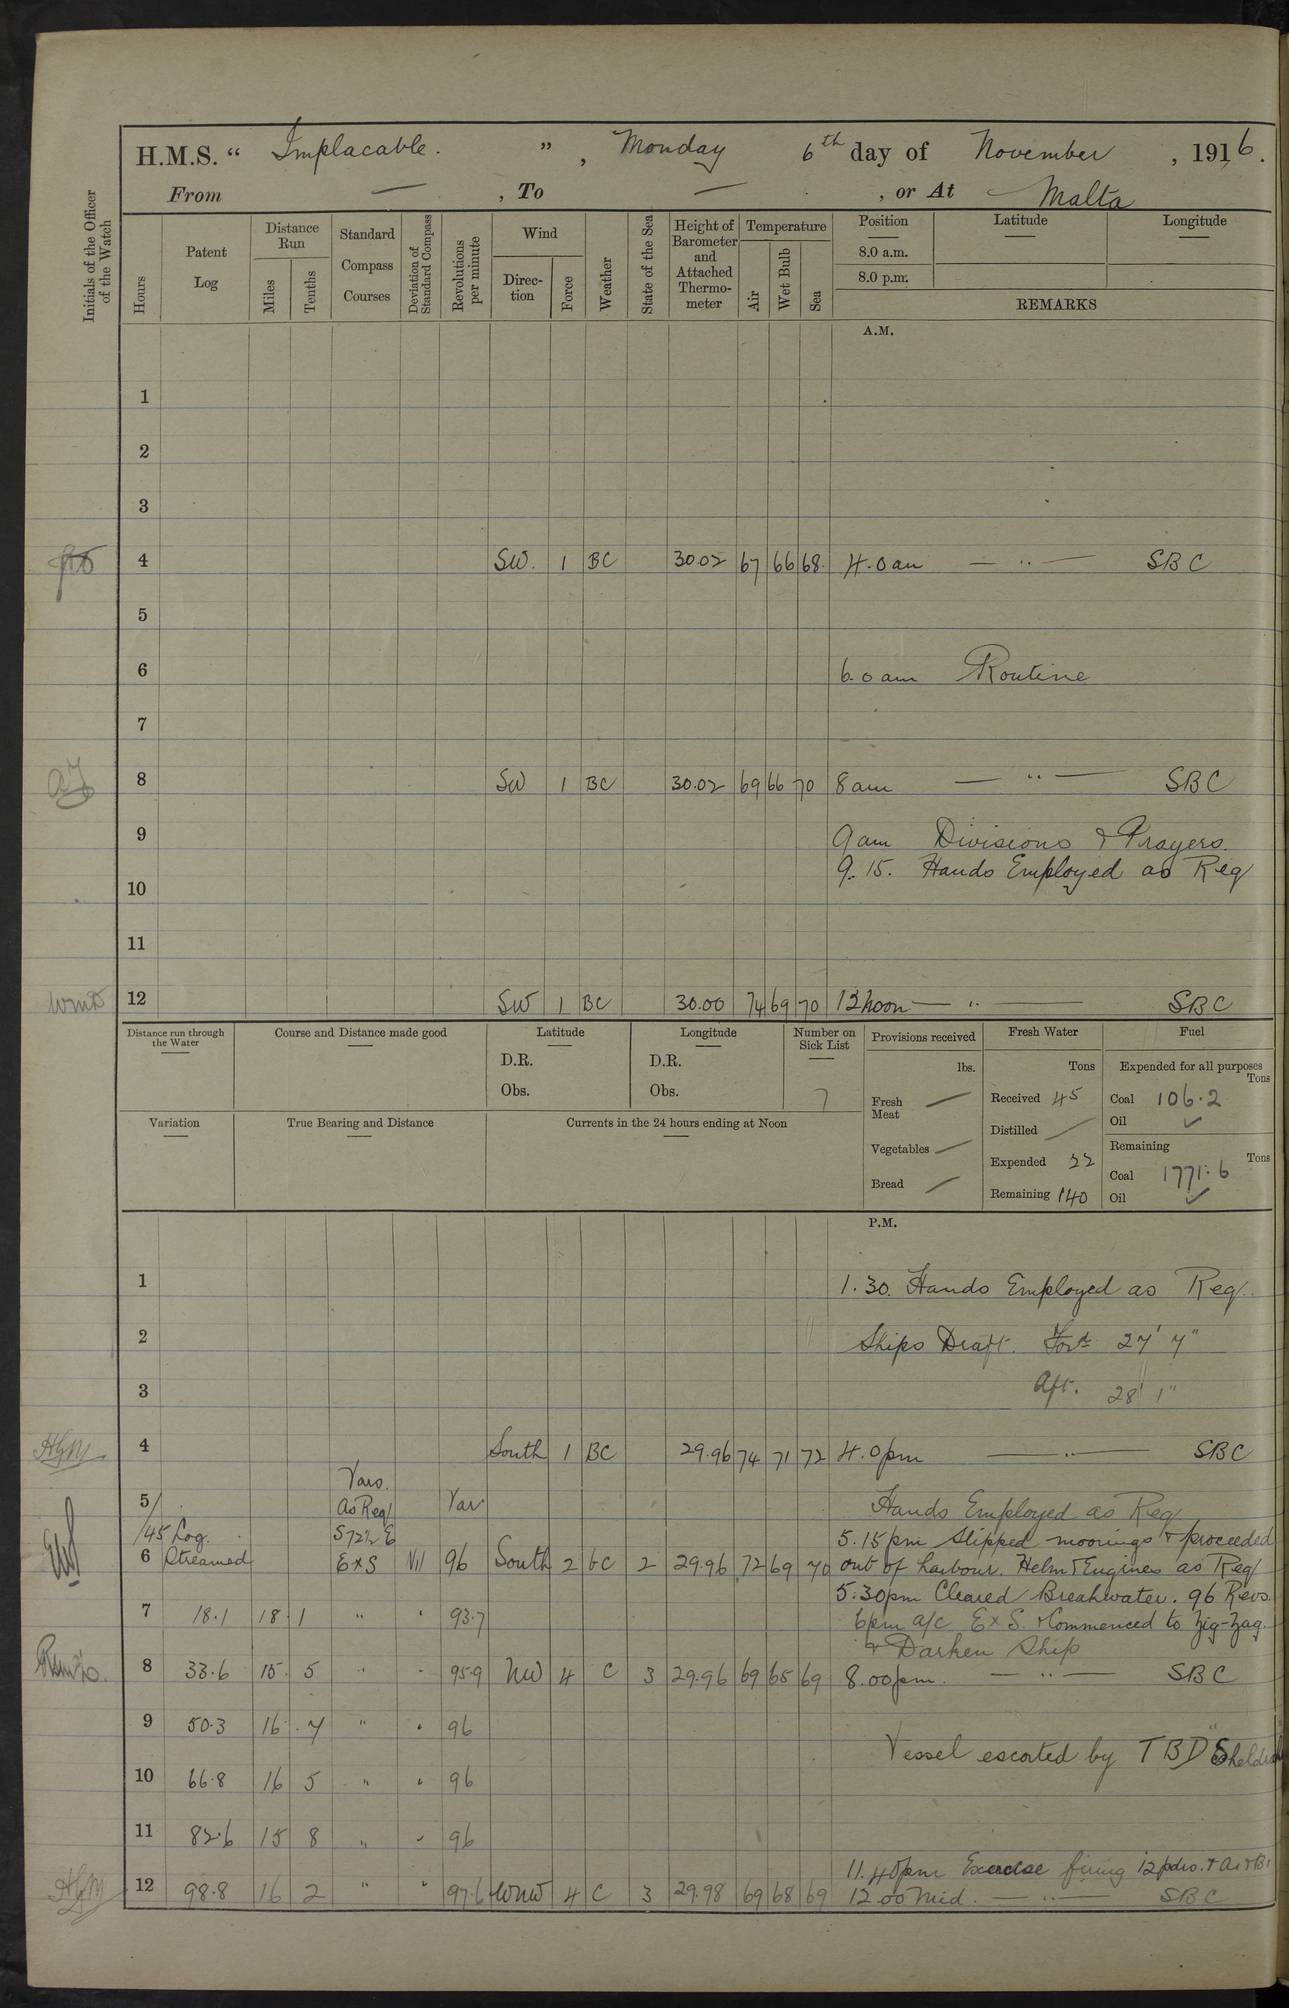 H.M.S. “ Implacable. ” , Monday 6th day of November , 1916.
From — , To — , or At Malta
Initials of the Officer of the Watch
Hours
Patent Log
Distance Run
Miles
Tenths
Standard Compass Courses
Deviation of Standard Compass
Revolutions per minute
Wind
Direc- tion
Force
Weather
State of the Sea
Height of Barometer and Attached Thermo- meter
Temperature
Air
Wet Bulb
Sea
Position
8.0 a.m.
8.0 p.m.
Latitude
Longitude
REMARKS
A.M.
1
2
3
4 SW. 1 BC 30.02 67 66 68. 4.0 am — " — SBC
5
6 6.0 am Routine
7
8 SW 1 BC 30.02 69 66 70 8 am — " — SBC
9 9 am Divisions & Prayers.
9.15. Hands Employed as Req
10
11
12 SW 1 BC 30.00 74 69 70 12 noon — " — SBC
Distance run through the Water
Course and Distance made good
Latitude
D.R.
Obs.
Longitude
D.R.
Obs.
Number on Sick List
7
Variation
True Bearing and Distance
Currents in the 24 hours ending at Noon
Provisions received
lbs.
Fresh Meat —
Vegetables —
Bread —
Fresh Water
Tons
Received 45
Distilled —
Expended 22
Remaining 140
Fuel
Expended for all purposes
Tons
Coal 106.2
Oil ✓
Remaining
Tons
Coal 1771.6
Oil ✓
P.M.
1 1.30. Hands Employed as Req.
2 Ships Draft. Ford 27' 7"
3 Aft. 28' 1"
HGM 4 South 1 BC 29.96 74 71 72 4.0 pm — " — SBC
Vars.
5/ As Req Var Hands Employed as Req
/45 Log. S72½E 5.15 pm Slipped moorings & proceeded
6 Streamed ExS 96 South 2 bc 2 29.96 72 69 70 out of harbour. Helm & Engines as Req
5.30pm Cleared Breakwater. 96 Revs.
7 18.1 18 1 " " 93.7 6pm a/c ExS. & Commenced to Zig-Zag.
& Darken Ship
8 33.6 15 5 " " 95.9 NW 4 C 3 29.96 69 65 69 8.00 pm. — " — SBC
9 50.3 16 7 " " 96
Vessel escorted by TBD "Sheldrake"
10 66.8 16 5 " " 96
11 82.6 15 8 " " 96
11.40pm Exercise firing 12 pdrs. &
HGM 12 98.8 16 2 " " 97.6 WNW 4 C 3 29.98 69 68 69 12.00 Mid. — " — SBC